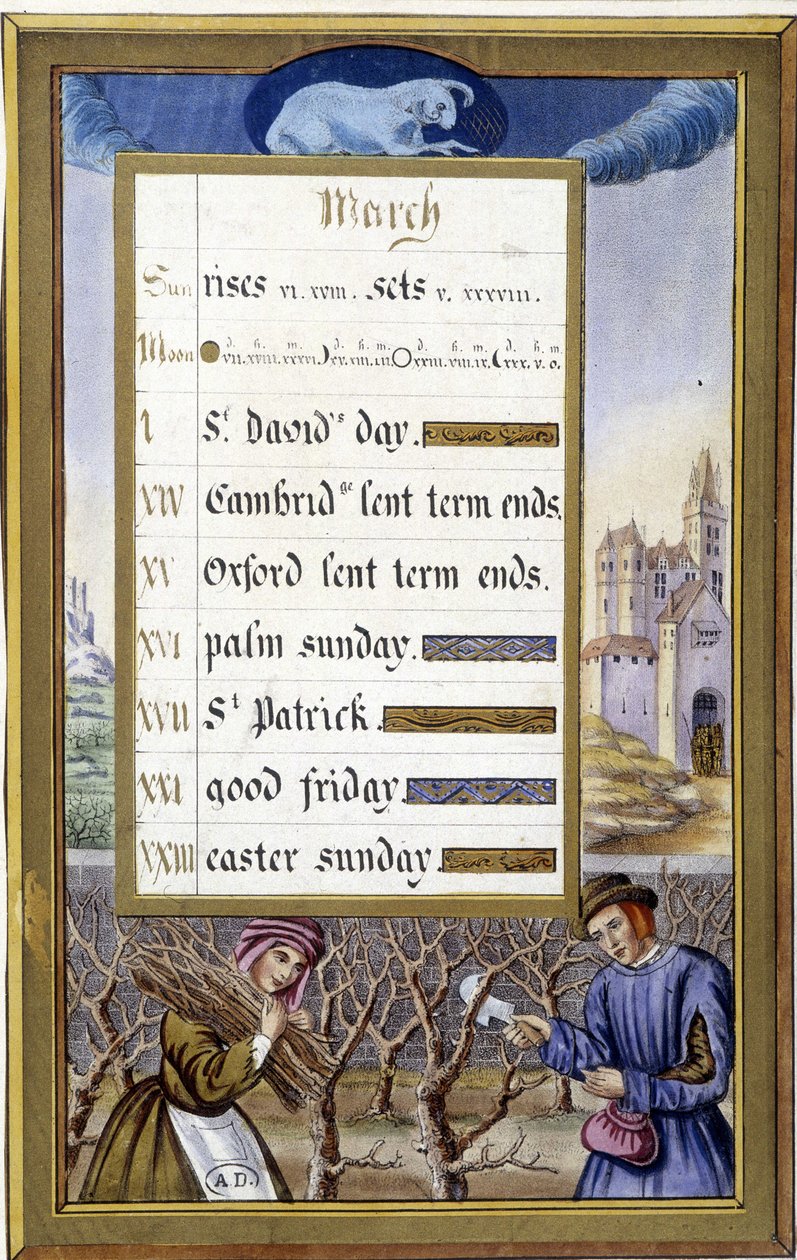 March
Sun rises vi. xviii. sets v. xxxviii.
Moon d. h. m. d. h. m. d. h. m. d. h. m.
vii. xviii. xxxvi xv. xiii. iii xxiii. viii. ix. xxx. v. o.
I St. David's day.
XIV Cambridge lent term ends.
XV Oxford lent term ends.
XVI palm sunday.
XVII St Patrick.
XXI good friday.
XXIII easter sunday.
A.D.